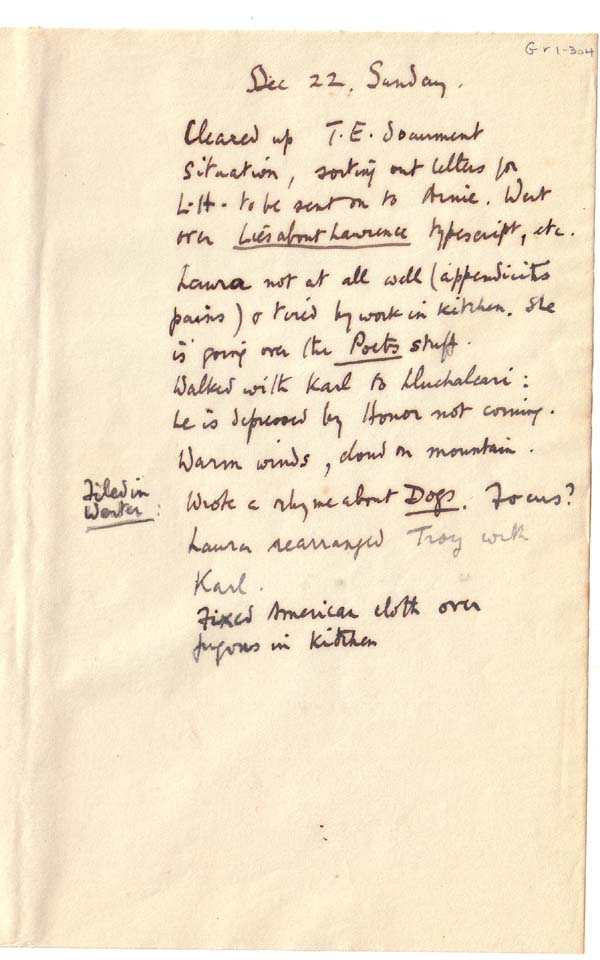 Gr 1-304
Dec 22, Sunday.
Cleared up T.E. document
situation, sorting out letters for
L.H. to be sent on to Arnie. Went
over Lies about Lawrence typescript, etc.
Laura not at all well (appendicitis
pains) & tired by work in kitchen. She
is going over the Poets stuff.
Walked with Karl to Lluchalcari:
he is depressed by Honor not coming.
Warm winds, cloud on mountain.
Filed in
Wrote a rhyme about Dogs. Focus?
Laura rearranged Troy with
Karl.
Fixed American cloth over
in kitchen